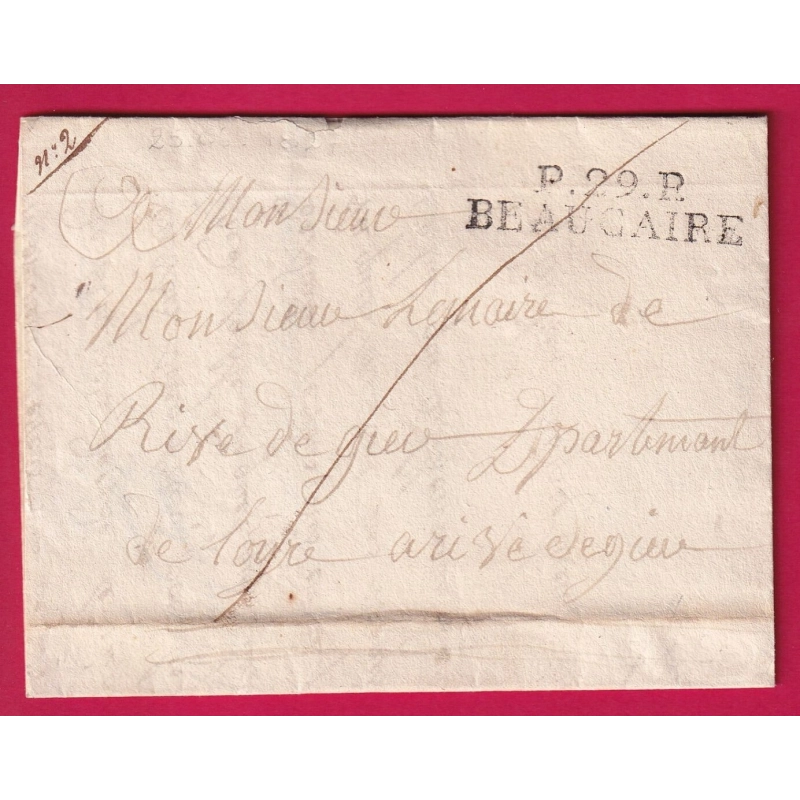 n.° 2
P.29.P.
BEAUCAIRE
A Monsieur
Monsieur Lemaire de
Rive de gier Dpartemant
de loyre a rive de gier